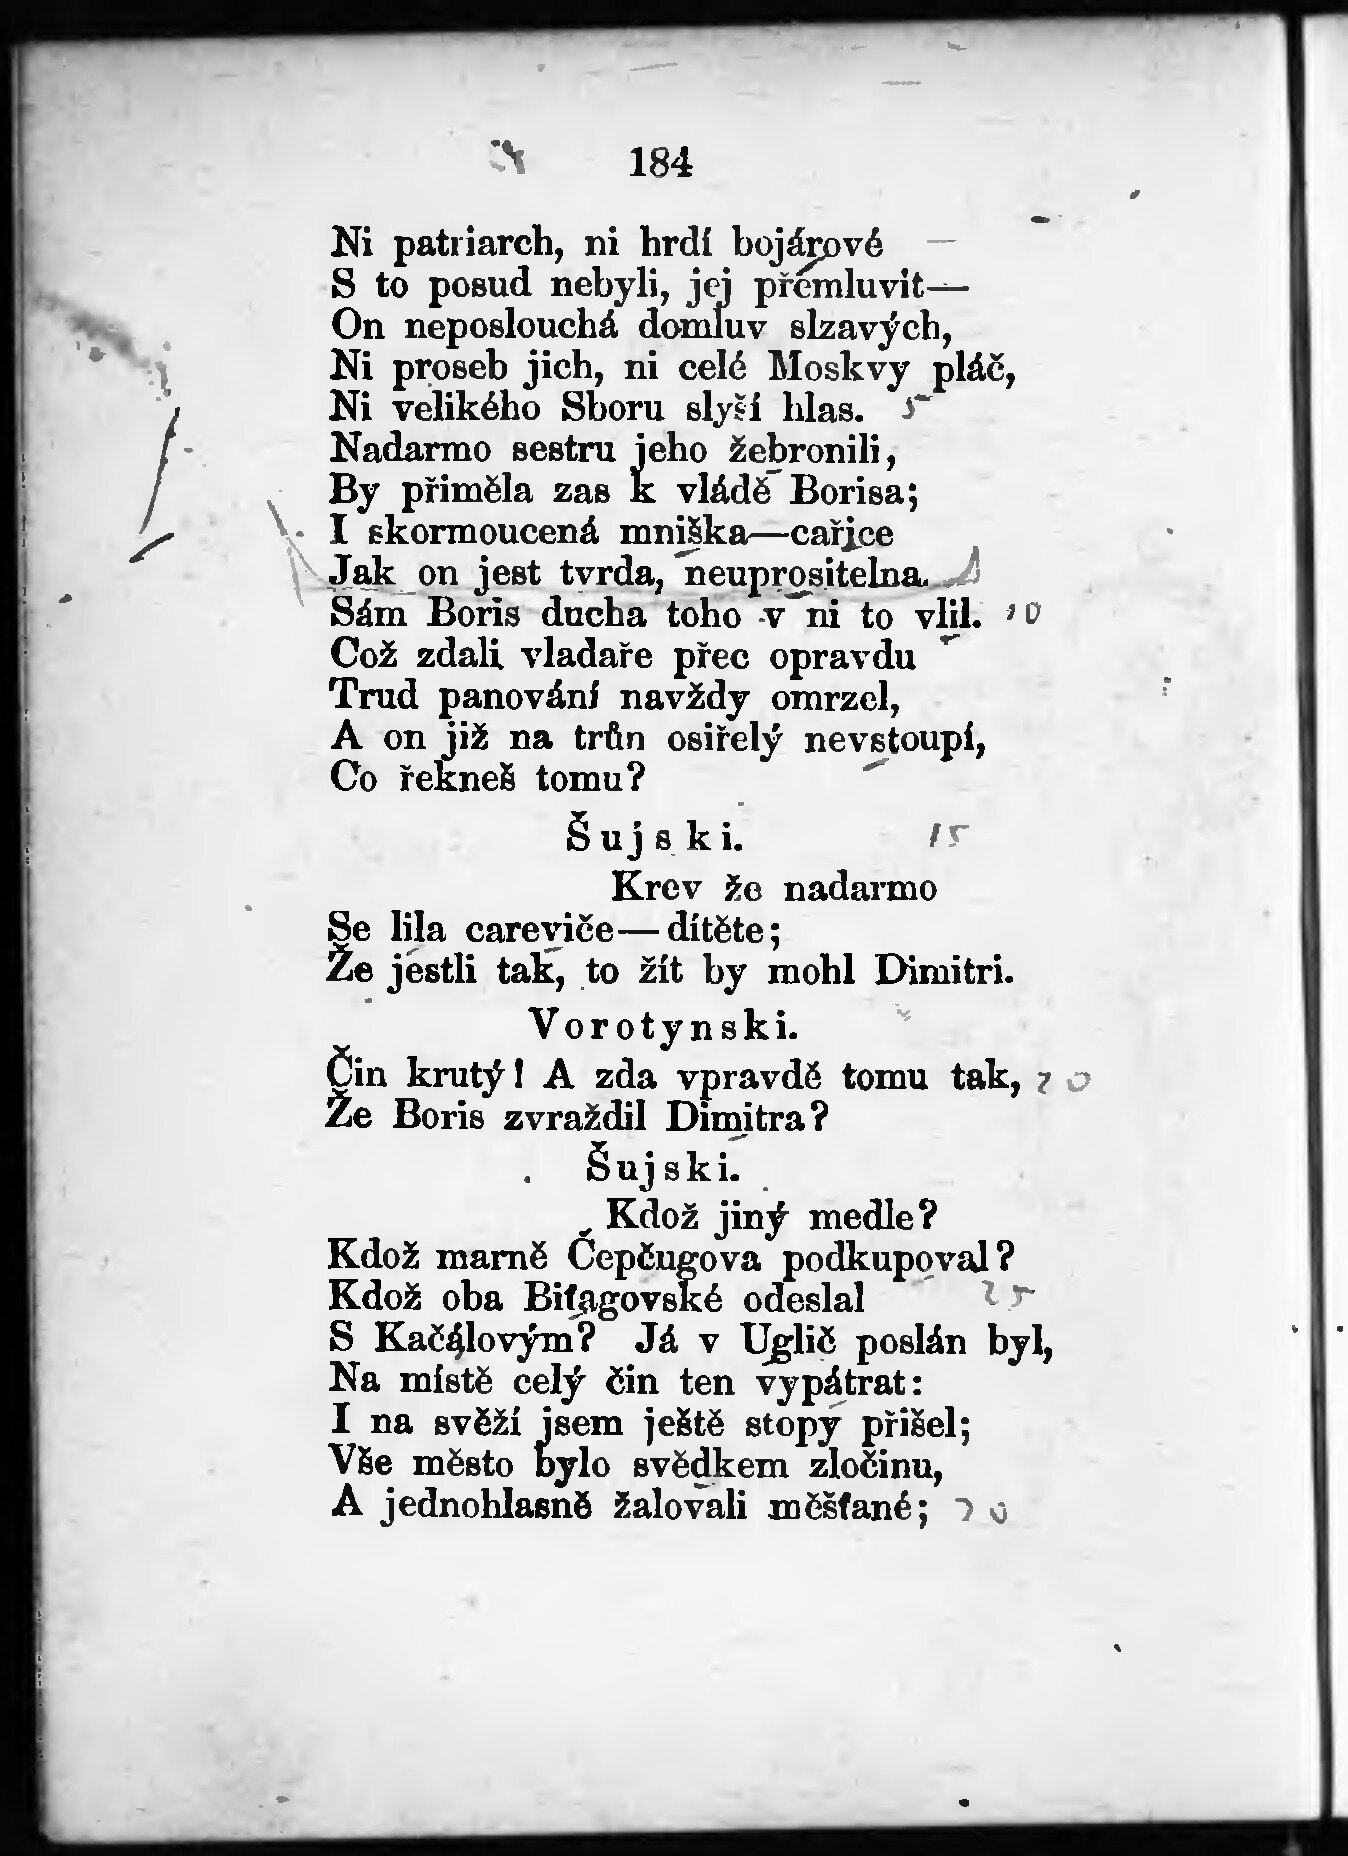 184
Ni patriarch, ni hrdí bojárové
S to posud nebyli, jej přemluvit—
On neposlouchá domluv slzavých,
Ni proseb jich, ni celé Moskvy pláč,
Ni velikého Sboru slyší hlas. 5
Nadarmo sestru jeho žebronili,
By přiměla zas k vládě Borisa;
I skormoucená mniška—cařice
Jak on jest tvrda, neuprositelna.
Sám Boris ducha toho v ni to vlil. 10
Což zdali vladaře přec opravdu
Trud panování navždy omrzel,
A on již na trůn osiřelý nevstoupí,
Co řekneš tomu?
Šujski. 15
Krev že nadarmo
Se lila careviče—dítěte;
Že jestli tak, to žít by mohl Dimitri.
Vorotynski.
Čin krutý! A zda vpravdě tomu tak, 20
Že Boris zvraždil Dimitra?
Šujski.
Kdož jiný medle?
Kdož marně Čepčugova podkupoval?
Kdož oba Biťagovské odeslal 25
S Kačálovým? Já v Uglič poslán byl,
Na místě celý čin ten vypátrat:
I na svěží jsem ještě stopy přišel;
Vše město bylo svědkem zločinu,
A jednohlasně žalovali měšťané; 30